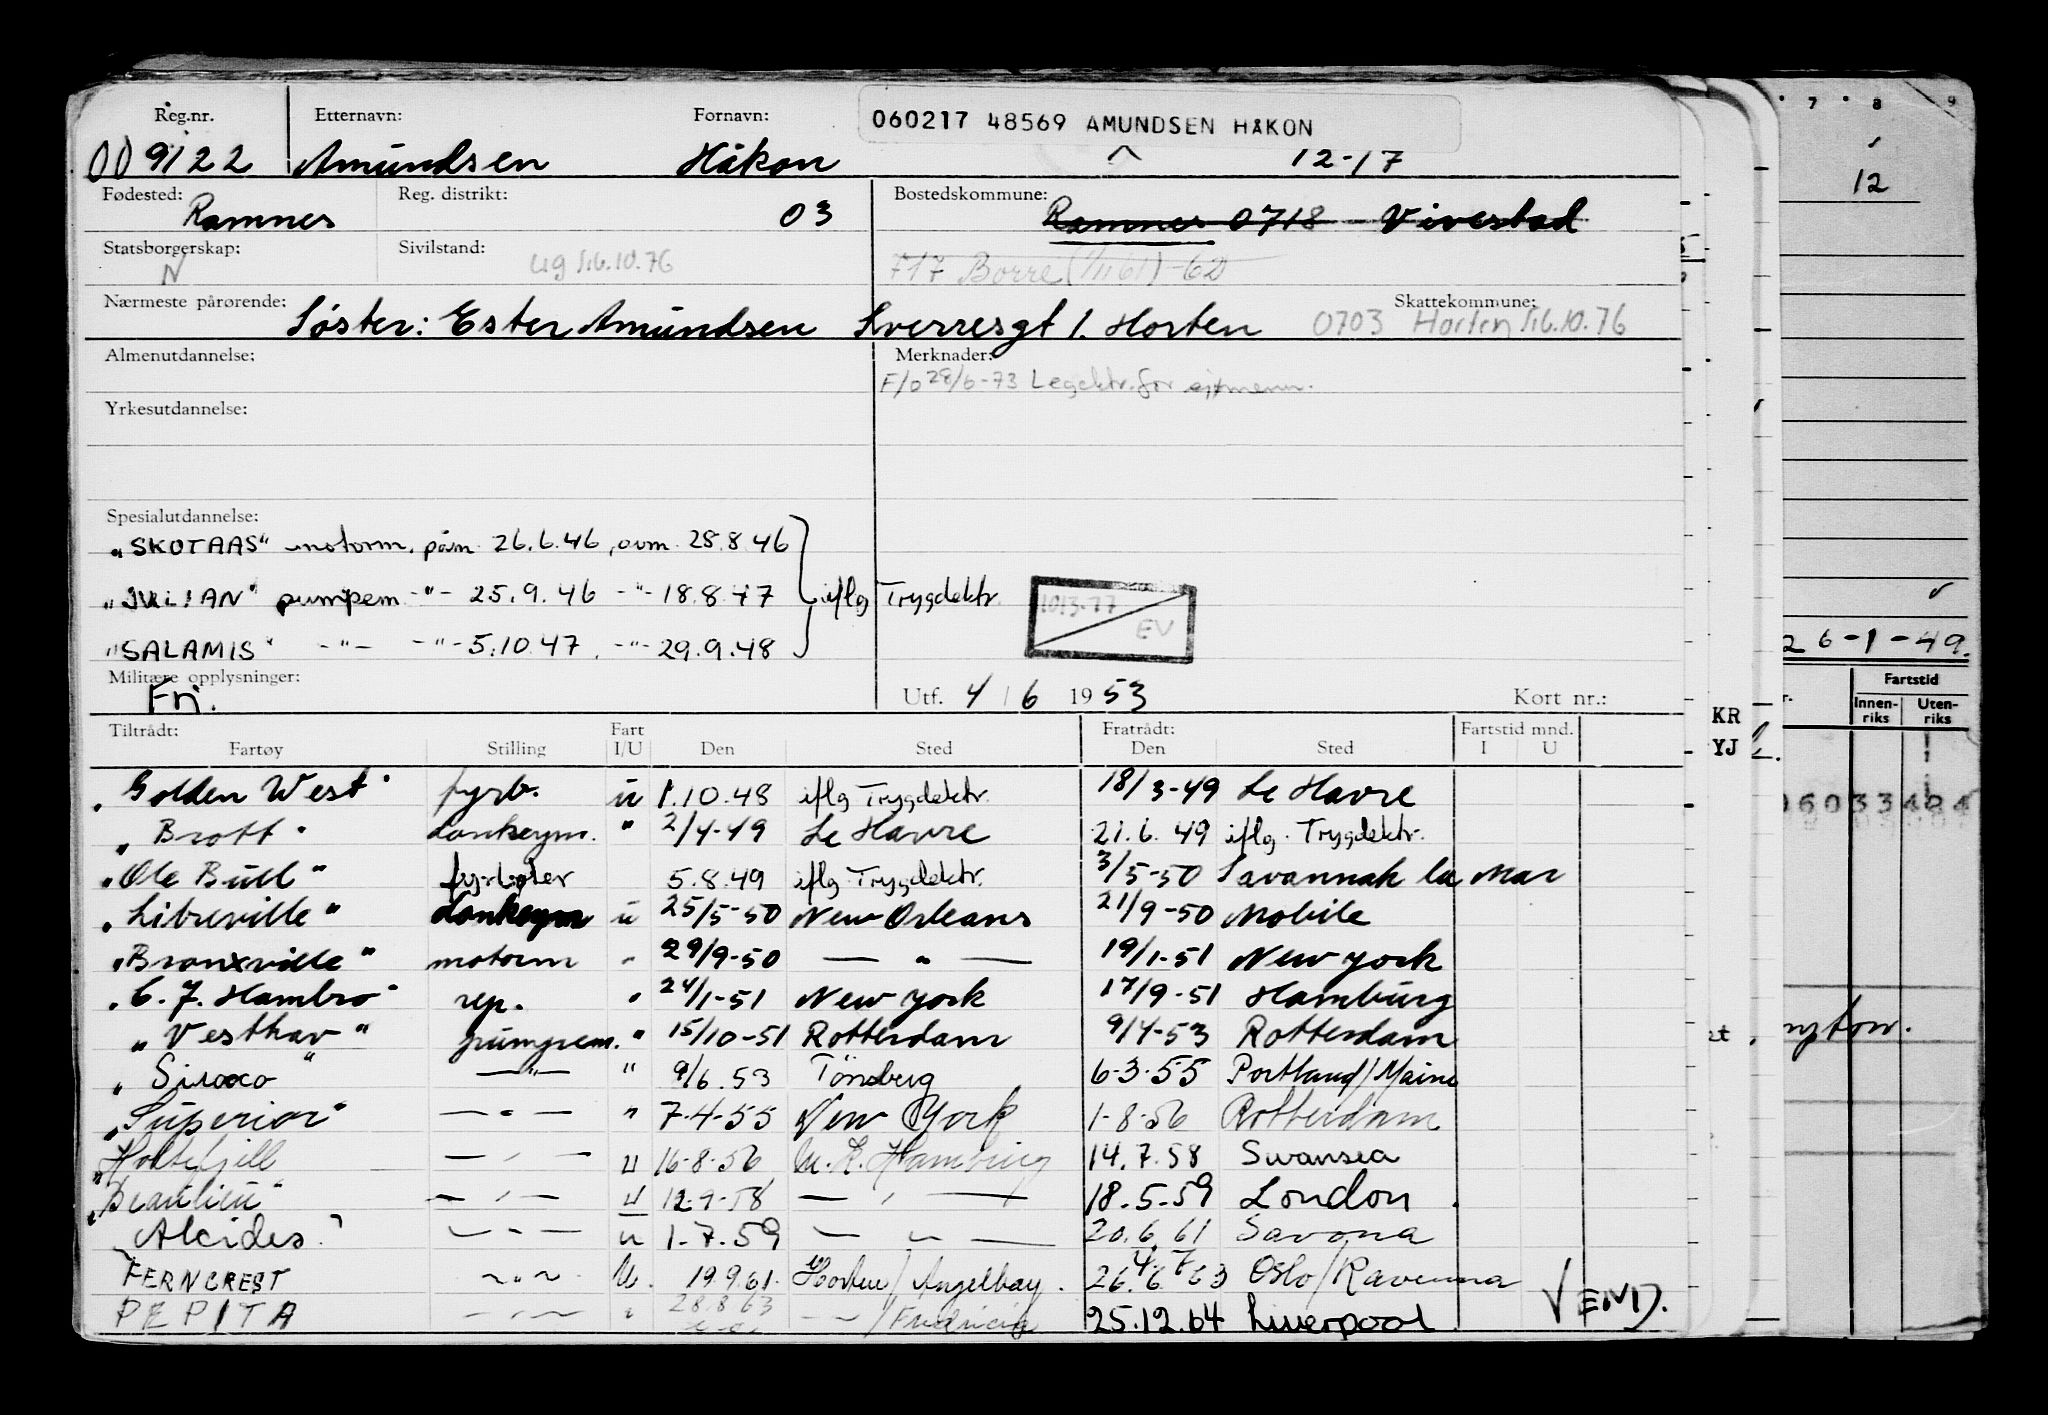 Reg.nr. Etternavn: Fornavn: 060217 48569 AMUNDSEN HÅKON
009122 Amundsen Håkon 12-17
Fødested: Reg. distrikt: Bostedskommune:
Ramnes 03 Ramnes 0718 - Vivestad
Statsborgerskap: Sivilstand:
N ug 16.10.76 717 Borre (1/11 61) - 62
Nærmeste pårørende: Skattekommune:
Søster: Ester Amundsen Sverresgt 1. Horten 0703 Horten 16.10.76
Almenutdannelse: Merknader:
F/o 28/6-73 Legektr. for sjømenn.
Yrkesutdannelse:
Spesialutdannelse:
"SKOTAAS" motorm. påm. 26.6.46, avm. 28.8.46
"JULIAN" pumpem. -"- 25.9.46 -"- 18.8.47 iflg Trygdektr. 1013.77
EV
"SALAMIS" -"- -"- 5.10.47. -"- 29.9.48
Militære opplysninger:
Fri. Utf. 4/6 1953 Kort nr.:
Tiltrådt: Fart Fratrådt: Fartstid mnd.
Fartøy Stilling I/U Den Sted Den Sted I U
"Golden West" fyrb. u 1.10.48 iflg Trygdektr. 18/3-49 Le Havre
"Brott" donkeym. " 2/4-49 Le Havre 21.6.49 iflg. Trygdektr.
"Ole Bull" fyrbøter 5.8.49 iflg. Trygdektr. 3/5-50 Savannah la Mar
"Libreville" donkeym u 25/5-50 New Orleans 21/9-50 Mobile
"Bronxville" motorm " 29/9-50 — " — 19/1-51 New York
"C. J. Hambro" rep. " 24/1-51 New York 17/9-51 Hamburg
"Vesthav" pumpem. " 15/10-51 Rotterdam 9/4-53 Rotterdam
"Siroco" — " — " 9/6.53 Tönsberg 6-3-55 Portland/Maine
"Superior" — " — " 7-4-55 New York 1-8-56 Rotterdam
"Holtefjell — " — u 16-8-56 Hamburg 14.7.58 Swansea
"Beaulieu" — " — u 12-9-58 — " — 18.5.59 London
"Alcides" — " — u 1-7.59 — " — 20.6.61 Savona
FERNCREST — " — U. 19.9.61. Horten/Angelbay. 26.6.63 Oslo/Ravenna
4.7
PEPITA — " — " 28.8.63 — " — /Fredricia 25.12.64 Liverpool VEND.
7 8 9
12
26-1-49.
Fartstid
Innen-riks Uten-riks
KR
YJ